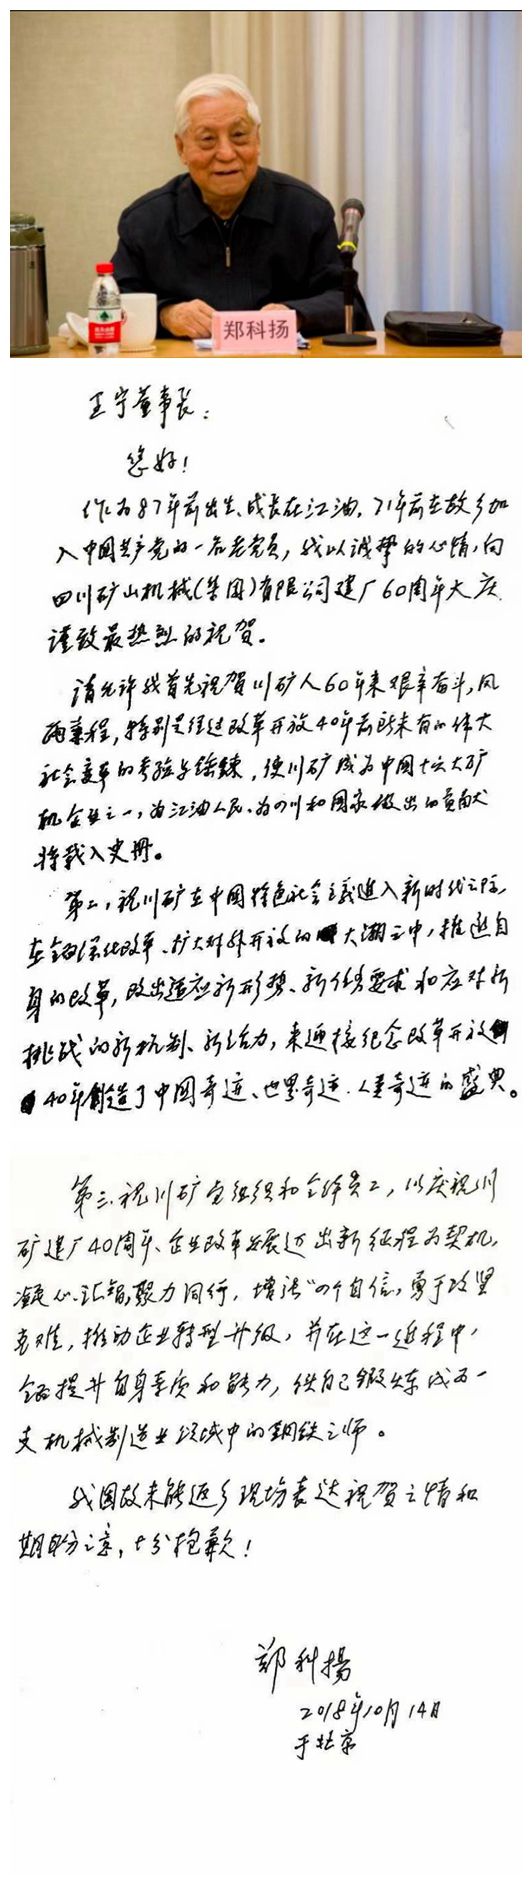 郑科扬
王宁董事长：
您好！
作为87年前出生、成长在江油，71年前在故乡加
入中国共产党的一名老党员，我以诚挚的心情，向
四川矿山机械(集团)有限公司建厂60周年大庆
谨致最热烈的祝贺。
请允许我首先祝贺川矿人60年来艰辛奋斗，风
雨兼程，特别是经过改革开放40年前所未有的伟大
社会变革的考验与锤鍊，使川矿成为中国十六大矿
机企业之一，为江油人民、为四川和国家做出的贡献
将载入史册。
第二，祝川矿在中国特色社会主義進入新时代之际，
在全面深化改革、扩大对外开放的大潮之中，推进自
身的改革，改出适应新形势、新任务要求和应对新
挑战的新机制、新活力，来迎接纪念改革开放
40年創造了中国奇迹、世界奇迹、人类奇迹的盛典。
第三，祝川矿党组织和全体员工，以庆祝川
矿建厂40周年、企业改革发展迈出新征程为契机，
凝心汇智，聚力同行，增强"四个自信，勇于攻坚
克难，推动企业转型升级，并在这一进程中，
全面提升自身素质和能力，使自己锻炼成为一
支机械制造业领域中的钢铁之师。
我因故未能返乡现场表达祝贺之情和
期盼之意，十分抱歉！
郑科揚
2018年10月14日
于北京